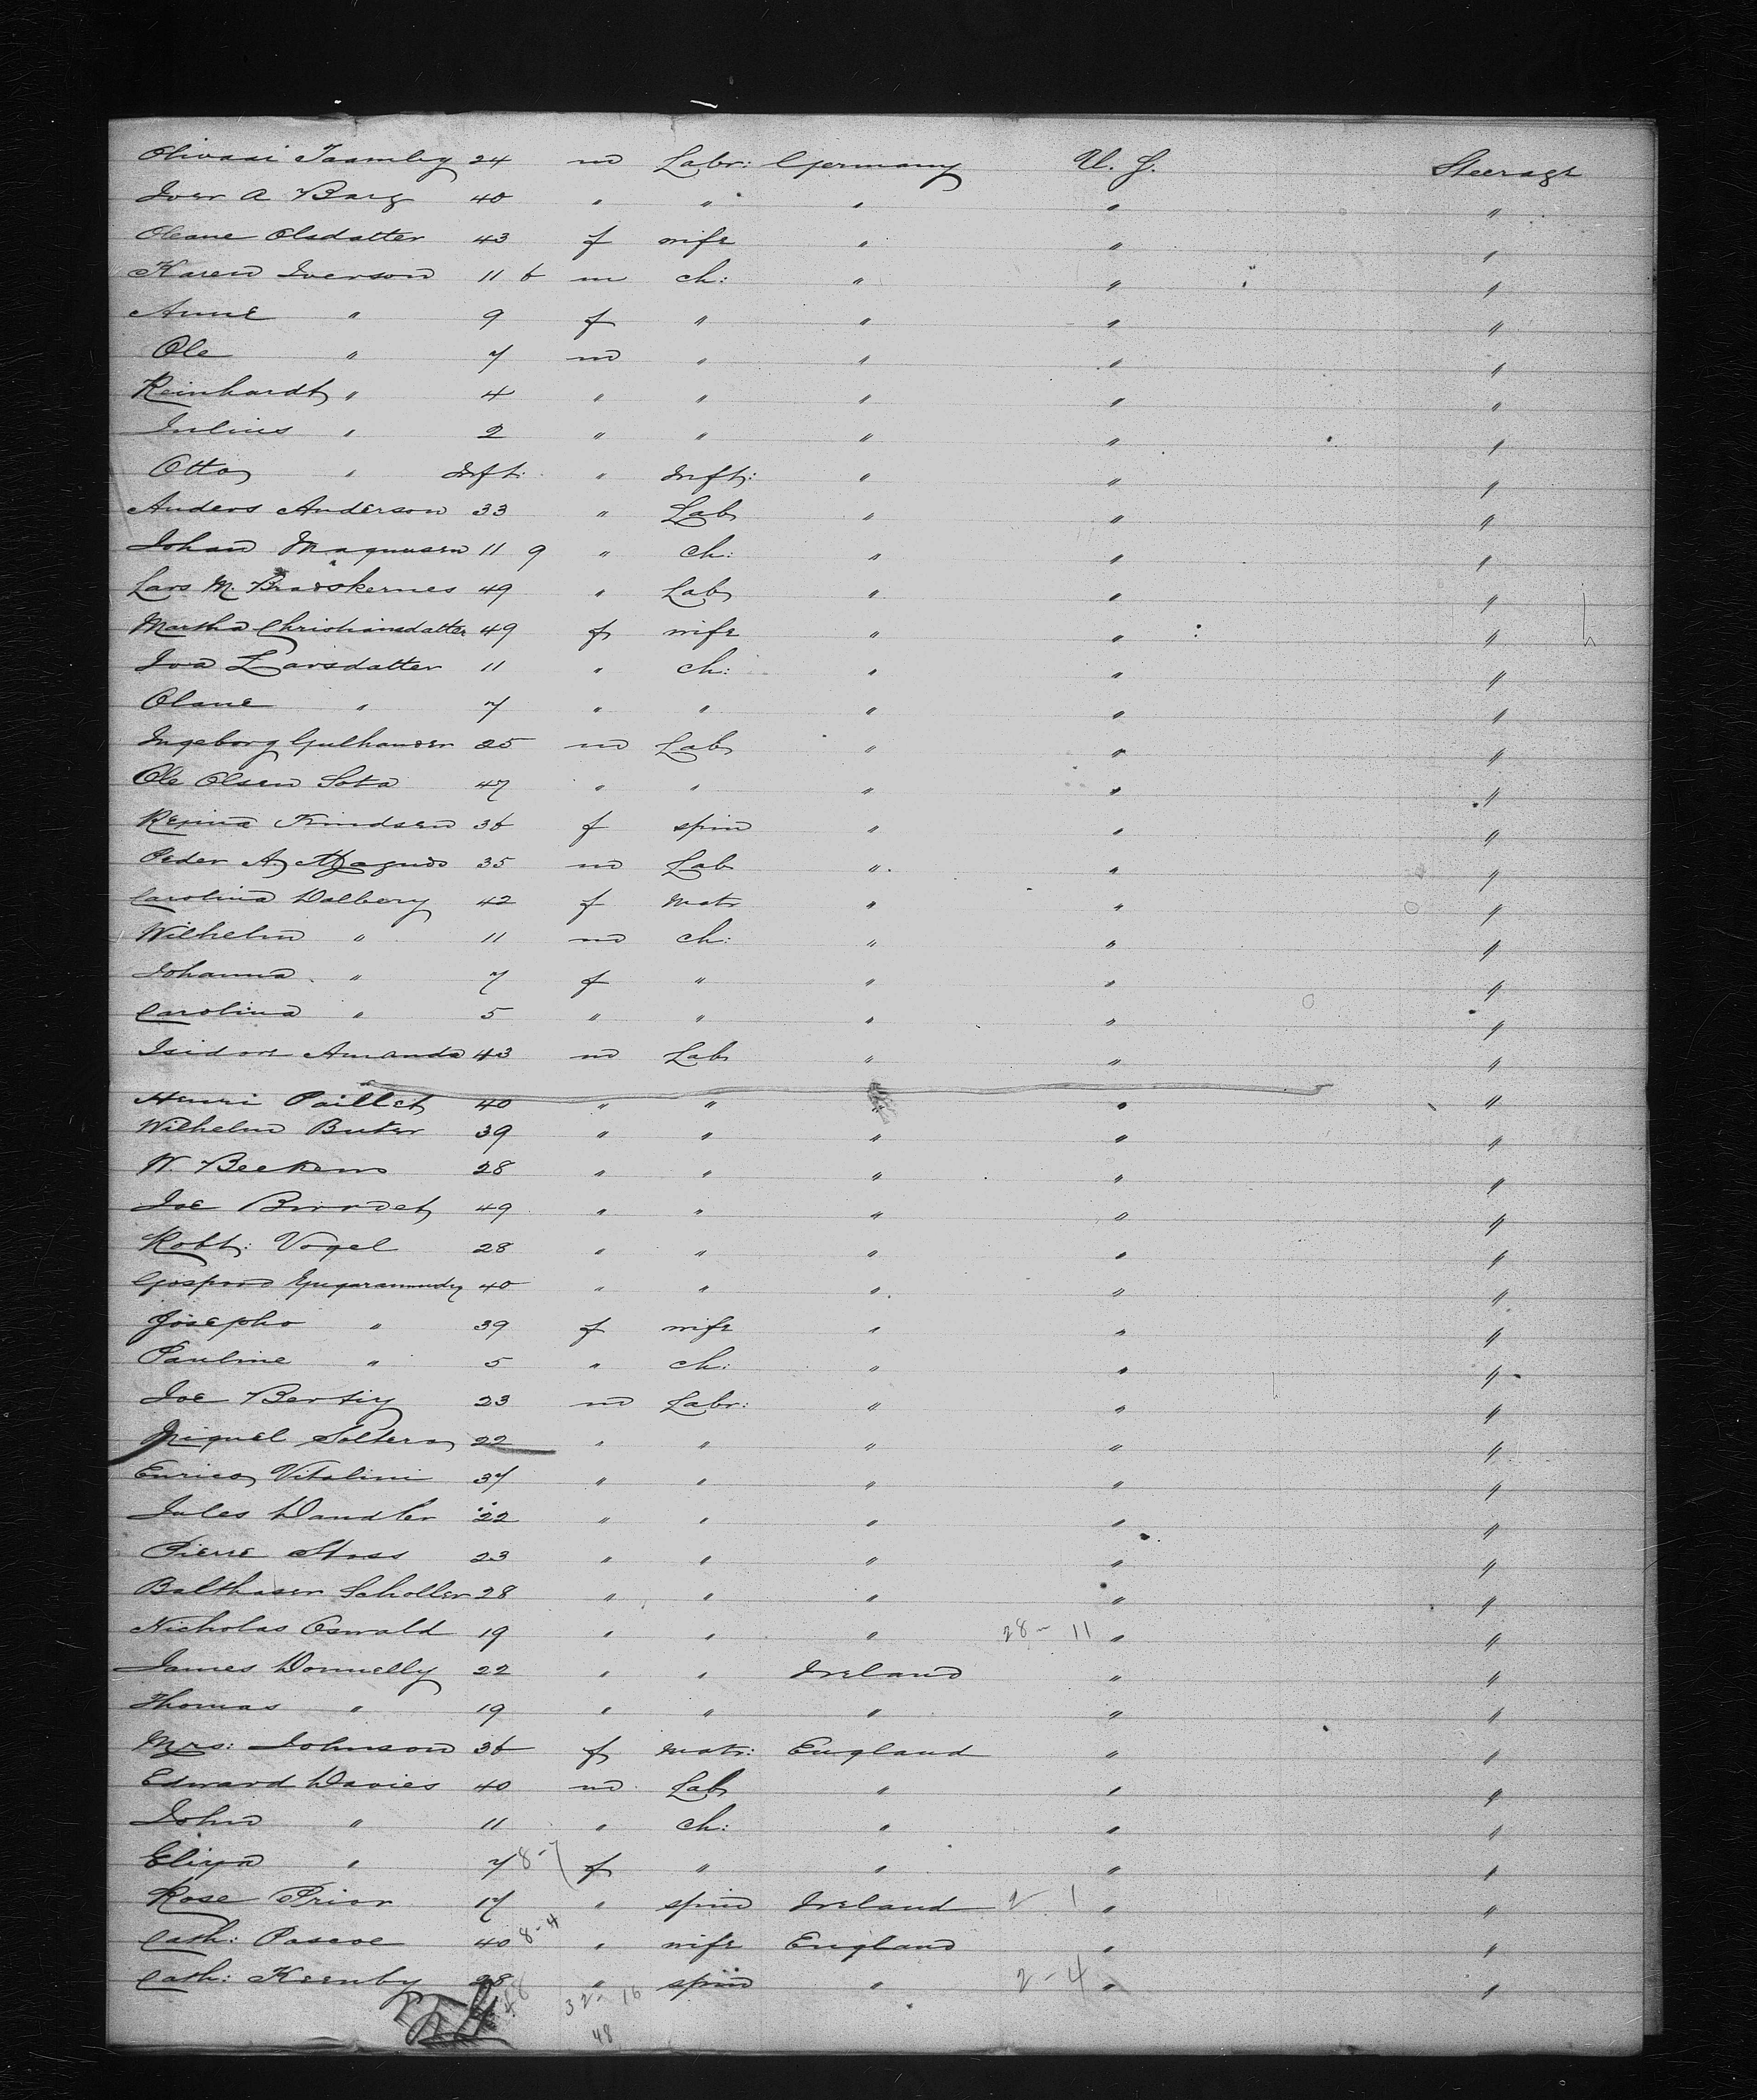 Olivaai Taamby 24 m Labr: Germany U. S. Steerage
Iver A Barg 40 " " " " "
Oleane Olsdatter 43 f wife " " "
Karen Iverson 11 6 m ch: " " "
Anne " 9 f " " " "
Ole " 7 m " " " "
Reinhardt " 4 " " " " "
Julius " 2 " " " " "
Otto " Inft: " Inft: " " "
Anders Anderson 33 " Lab " " "
Johan Magnusen 11 9 " ch: " " "
Lars M. 49 " Lab " " "
Martha Christiansdatter 49 f wife " " "
Iva Larsdatter 11 " ch: " " "
Olane " 7 " " " " "
Ingeborg Gulhauser 25 m Lab " " "
Ole Olsen Sota 47 " " " " "
Regina Knudsen 36 f spin " " "
Peder A. Magnus 35 m Lab " " "
Carolina Dalberg 42 f Matr " " "
Wilhelm " 11 m ch: " " "
Johanna " 7 f " " " "
Carolina " 5 " " " " "
Isidore Amanda 43 m Lab " " "
Henri Paillet 40 " " " "
Wilhelm Buter 39 " " " " "
W. Beekens 28 " " " " "
Joe Bourdet 49 " " " " "
Robt: Vogel 28 " " " " "
40 " " " " "
Josepho " 39 f wife " " "
Pauline " 5 " ch: " " "
Joe Bertiy 23 m Labr: " " "
Miguel Soltero 22 " " " " "
Enrico Vitalini 37 " " " " "
Jules Dandler 22 " " " " "
Pierre Stoss 23 " " " " "
Balthaser Scholler 28 " " " " "
Nicholas Oswald 19 " " " 28 - 11 " "
James Donnelly 22 " " Ireland " "
Thomas " 19 " " " " "
Mrs: Johnson 36 f matr: England " "
Edward Davies 40 m Lab " " "
John " 11 " ch: " " "
Eliza " 7 8-7 f " " " "
Rose Prior 17 " spin Ireland 2 1 " "
Cath: Pascoe 40 8-4 " wife England " "
Cath: Keenby 28 " spin " 2-4 " "
48 32 - 16
48